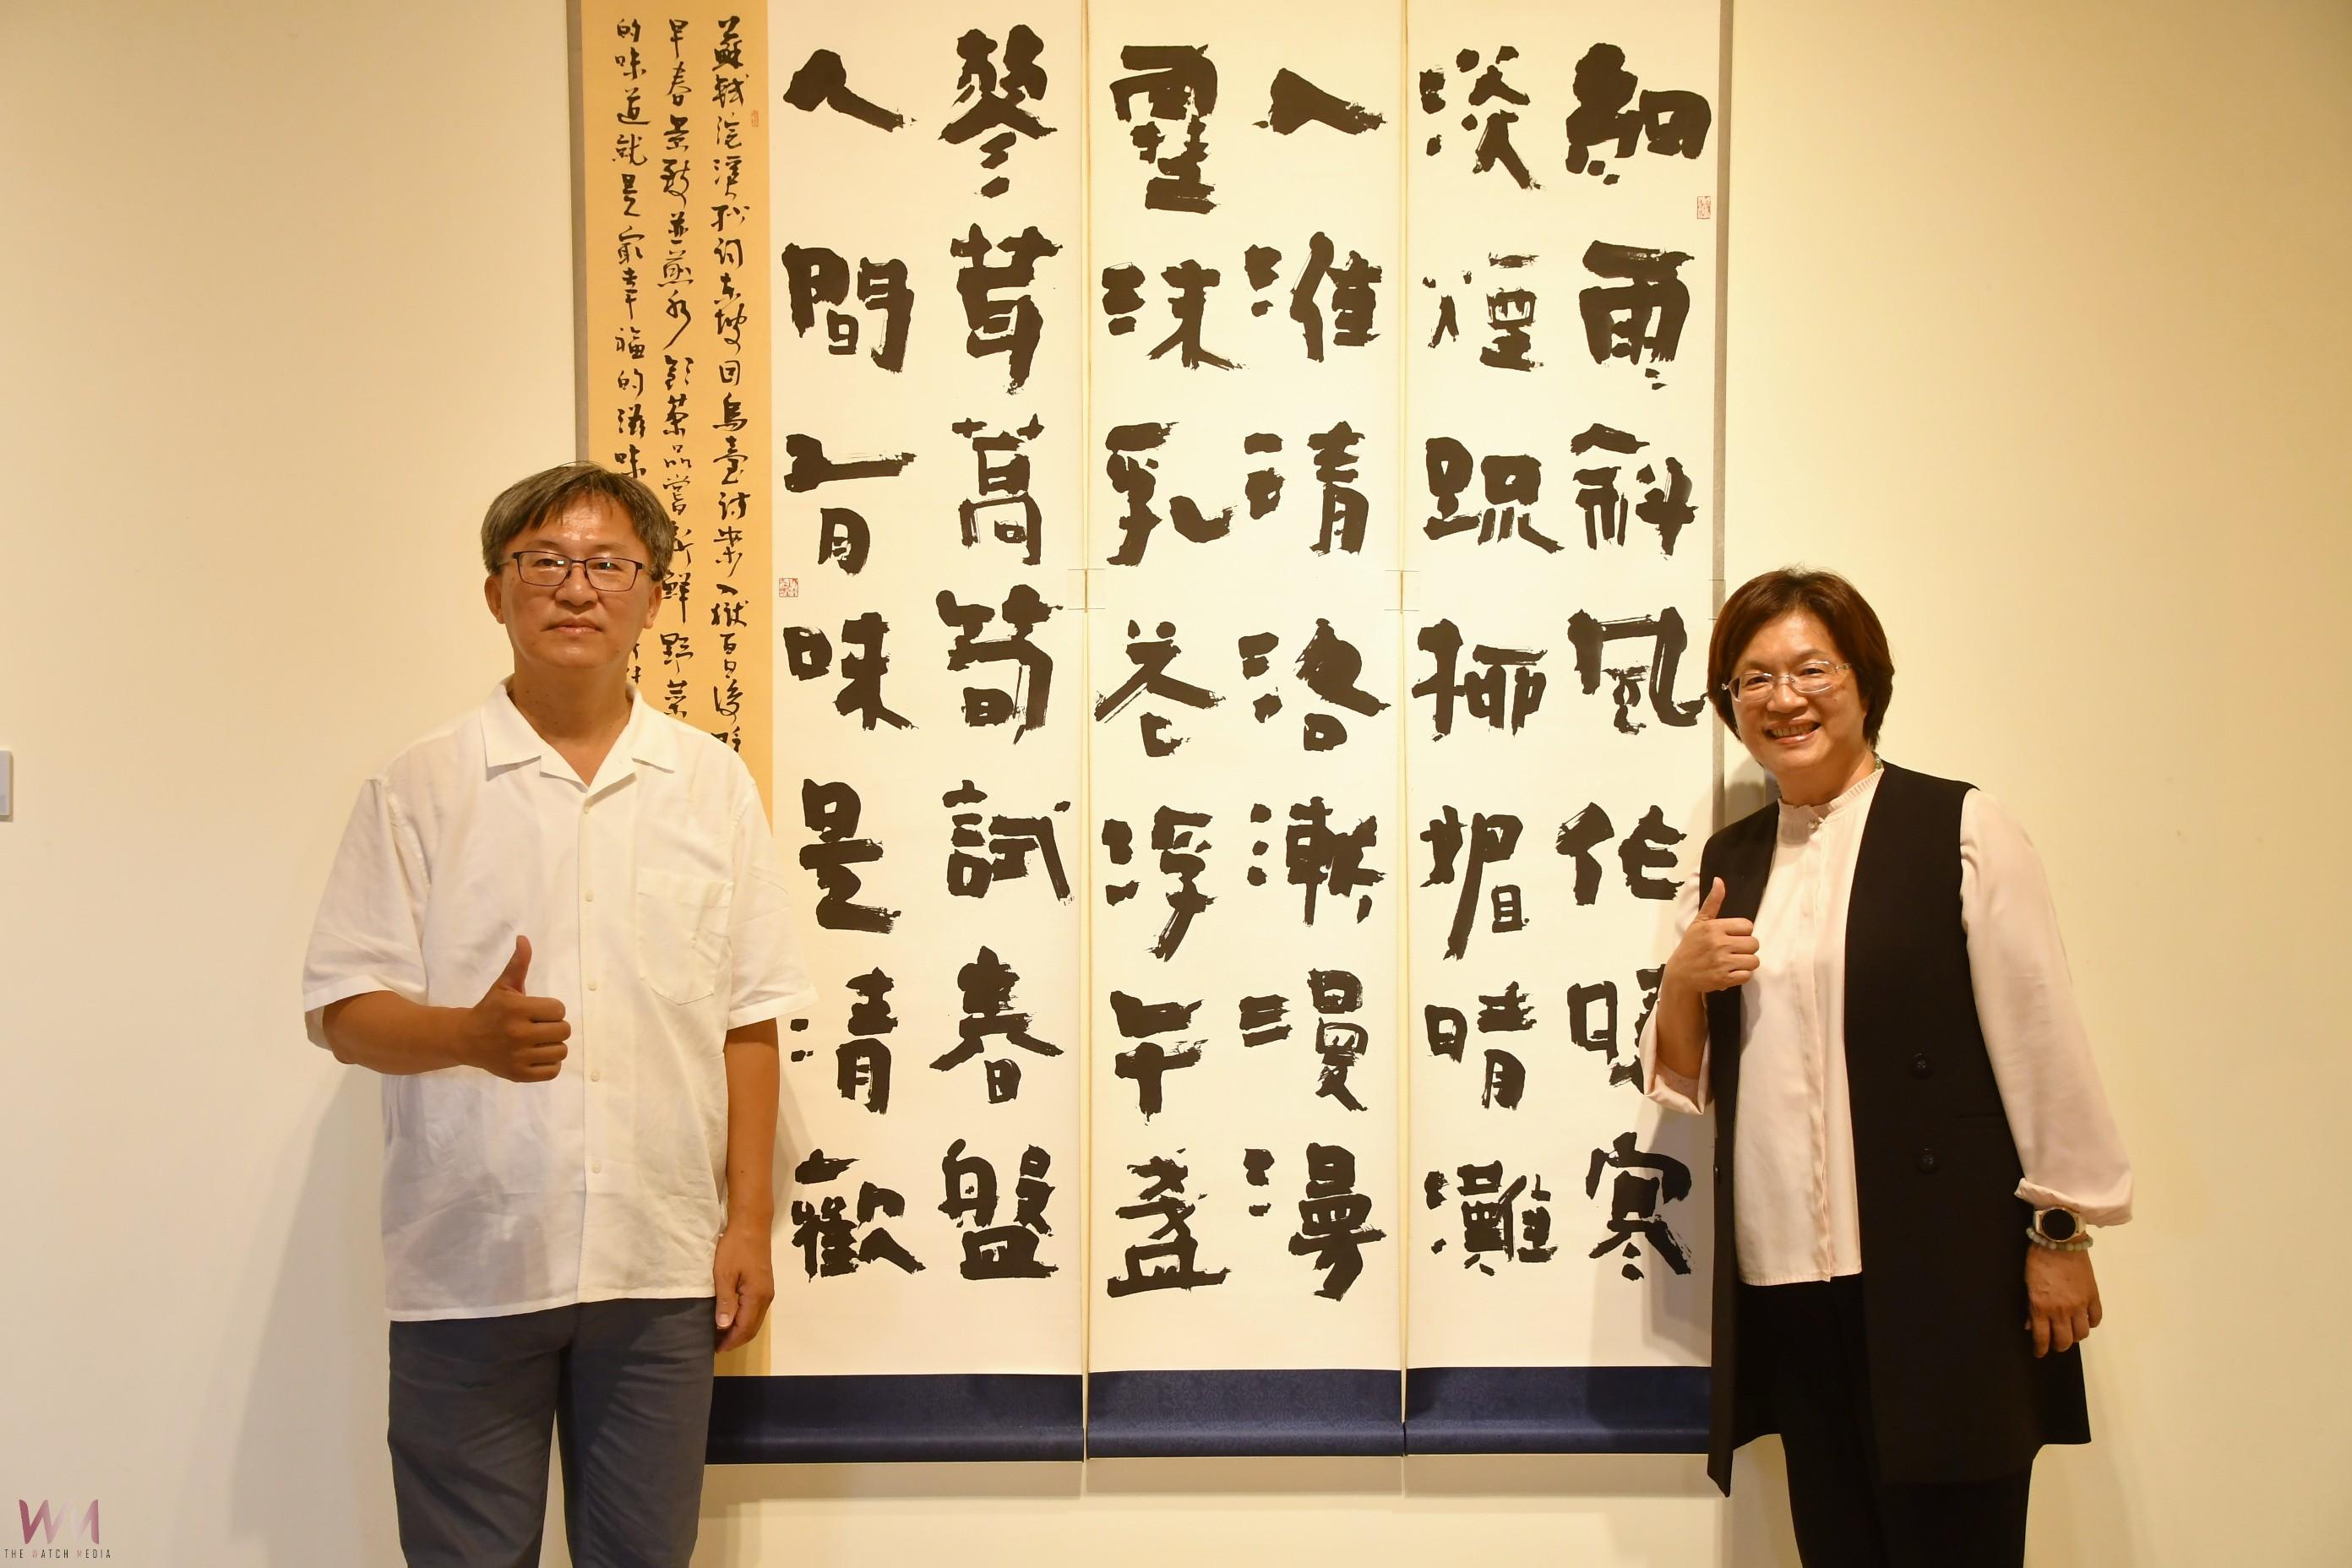 細雨斜風作曉寒
淡煙疏柳媚晴灘
入淮清洛漸漫漫
雪沫乳花浮午盞
蓼茸蒿筍試春盤
人間有味是清歡
蘇軾浣溪沙詞東坡因烏臺詩案入獄百日後
早春景致並煎水茶品嘗新鮮野菜
的味道就是最幸福的滋味
WM
THE WATCH MEDIA